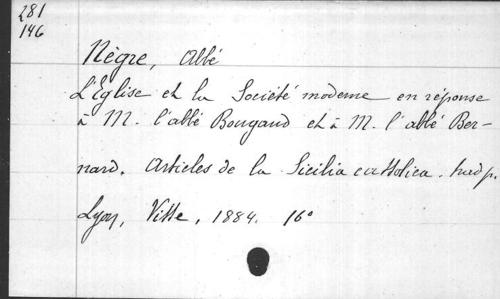 281
146
Nègre, Abbé
L'Église et la Société moderne en réponse
à M. l'abbé Bougaud et à M. l'abbé Ber-
nard. Articles de la Sicilia cattolica. trad p.
Lyon, Vitte, 1884. 16°